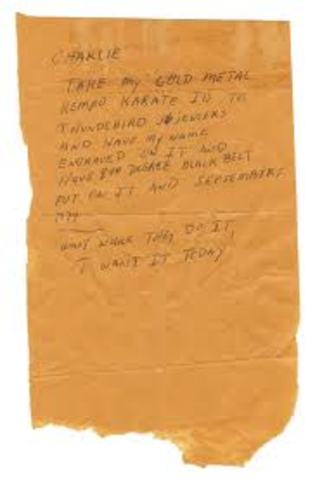 CHARLIE
TAKE MY GOLD METAL
KEMPO KARATE ID TO
THUNDEBIRD JEWELERS
AND HAVE MY NAME
ENGRAVED ON IT AND
HAVE 8TH DEGREE BLACK BELT
PUT ON IT AND SEPTEMBER
1974
WAIT WHILE THEY DO IT,
I WANT IT TODAY